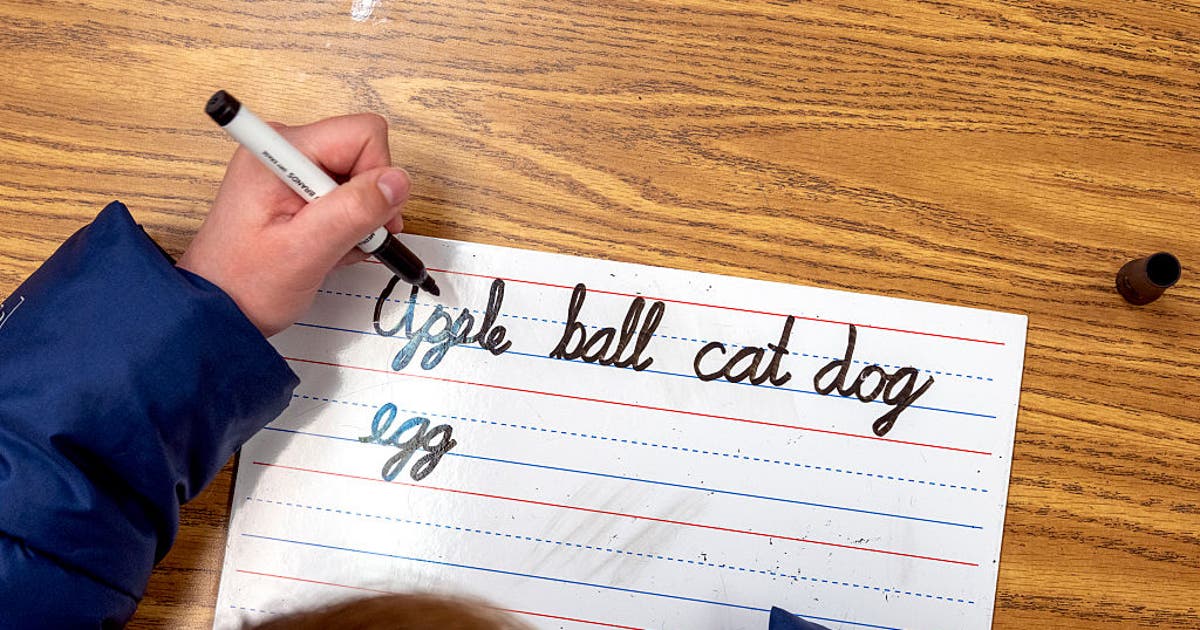 apple ball cat dog
egg
BRANDS